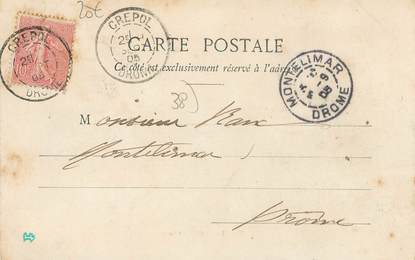 20€
CREPOL
DROME
CREPOL
DROME
CARTE POSTALE
Ce côté est exclusivement réservé à l'adresse
MONTELIMAR
DROME
38
Monsieur
Montélimar
Drôme